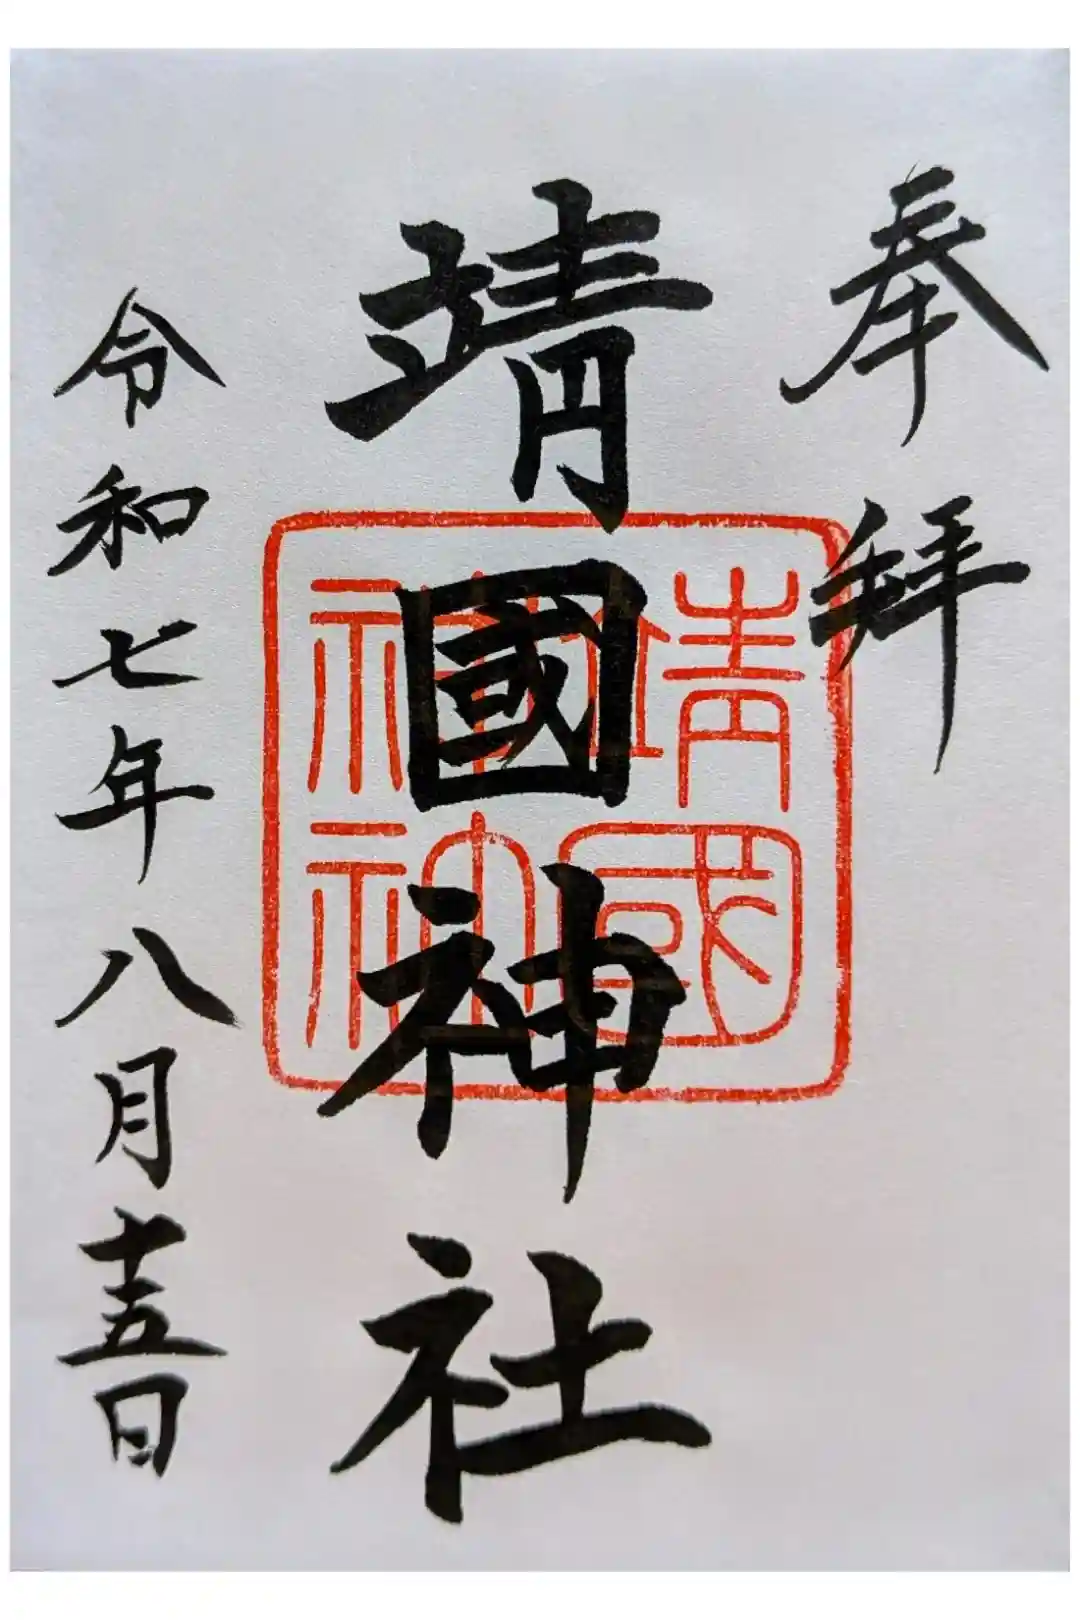 奉拜
靖國神社
靖國神社
令和七年八月十五日